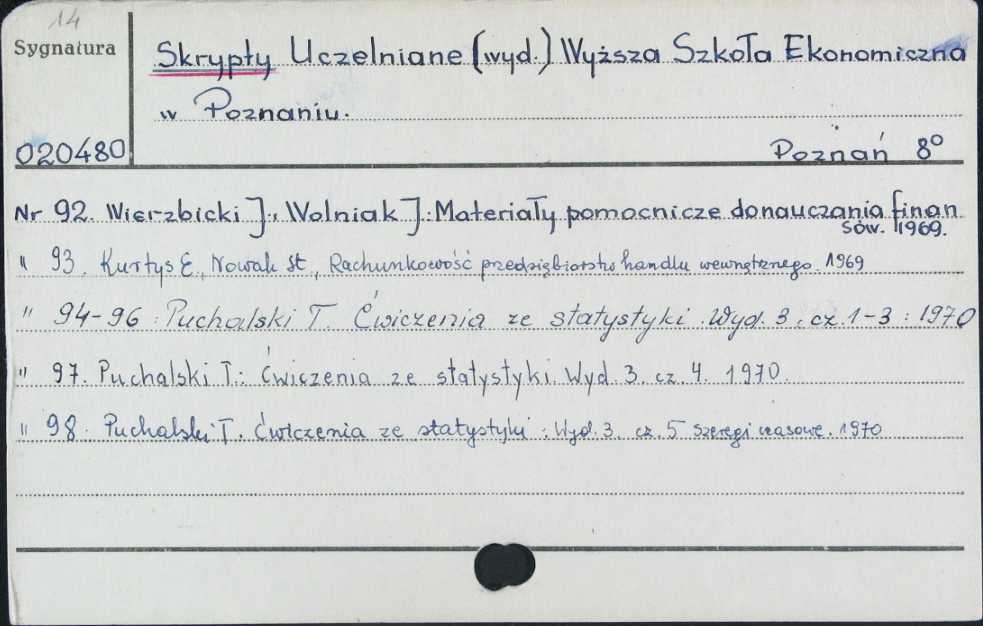 14
Sygnatura
Skrypty Uczelniane (wyd.) Wyższa Szkoła Ekonomiczna
w Poznaniu.
020480
Poznań 8°
Nr 92. Wierzbicki J., Wolniak J.: Materiały pomocnicze do nauczania finan
sów. 1969.
" 93. Kurtys E., Nowak St., Rachunkowość przedsiębiorstw handlu wewnętrznego. 1969
" 94-96 : Puchalski T. Ćwiczenia ze statystyki. Wyd. 3. cz. 1-3 : 1970
" 97. Puchalski T.: Ćwiczenia ze statystyki. Wyd. 3. cz. 4. 1970.
" 98. Puchalski T. Ćwiczenia ze statystyki : Wyd. 3. cz. 5 Szeregi czasowe. 1970